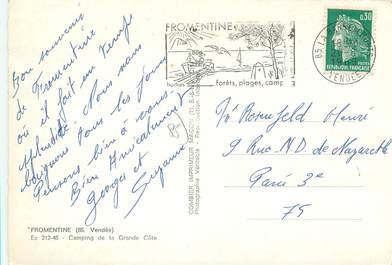 Bon souvenir
de Fromentine
où il fait un temps
splendide. Nous nous
baignons tous les jours
Pensons bien à vous.
Bien Amicalement
Georges et
Suzanne
85
FROMENTINE
forêts, plages, camp
0,30
REPUBLIQUE FRANÇAISE
POSTES
85
VENDÉE
Mr Rosenfeld Henri
9 Rue N.D. de Nazareth
Paris 3e
75
COMBIER IMPRIMEUR MACON
Photographie Véritable
"FROMENTINE (85. Vendée)
Ez 212-46 - Camping de la Grande Côte